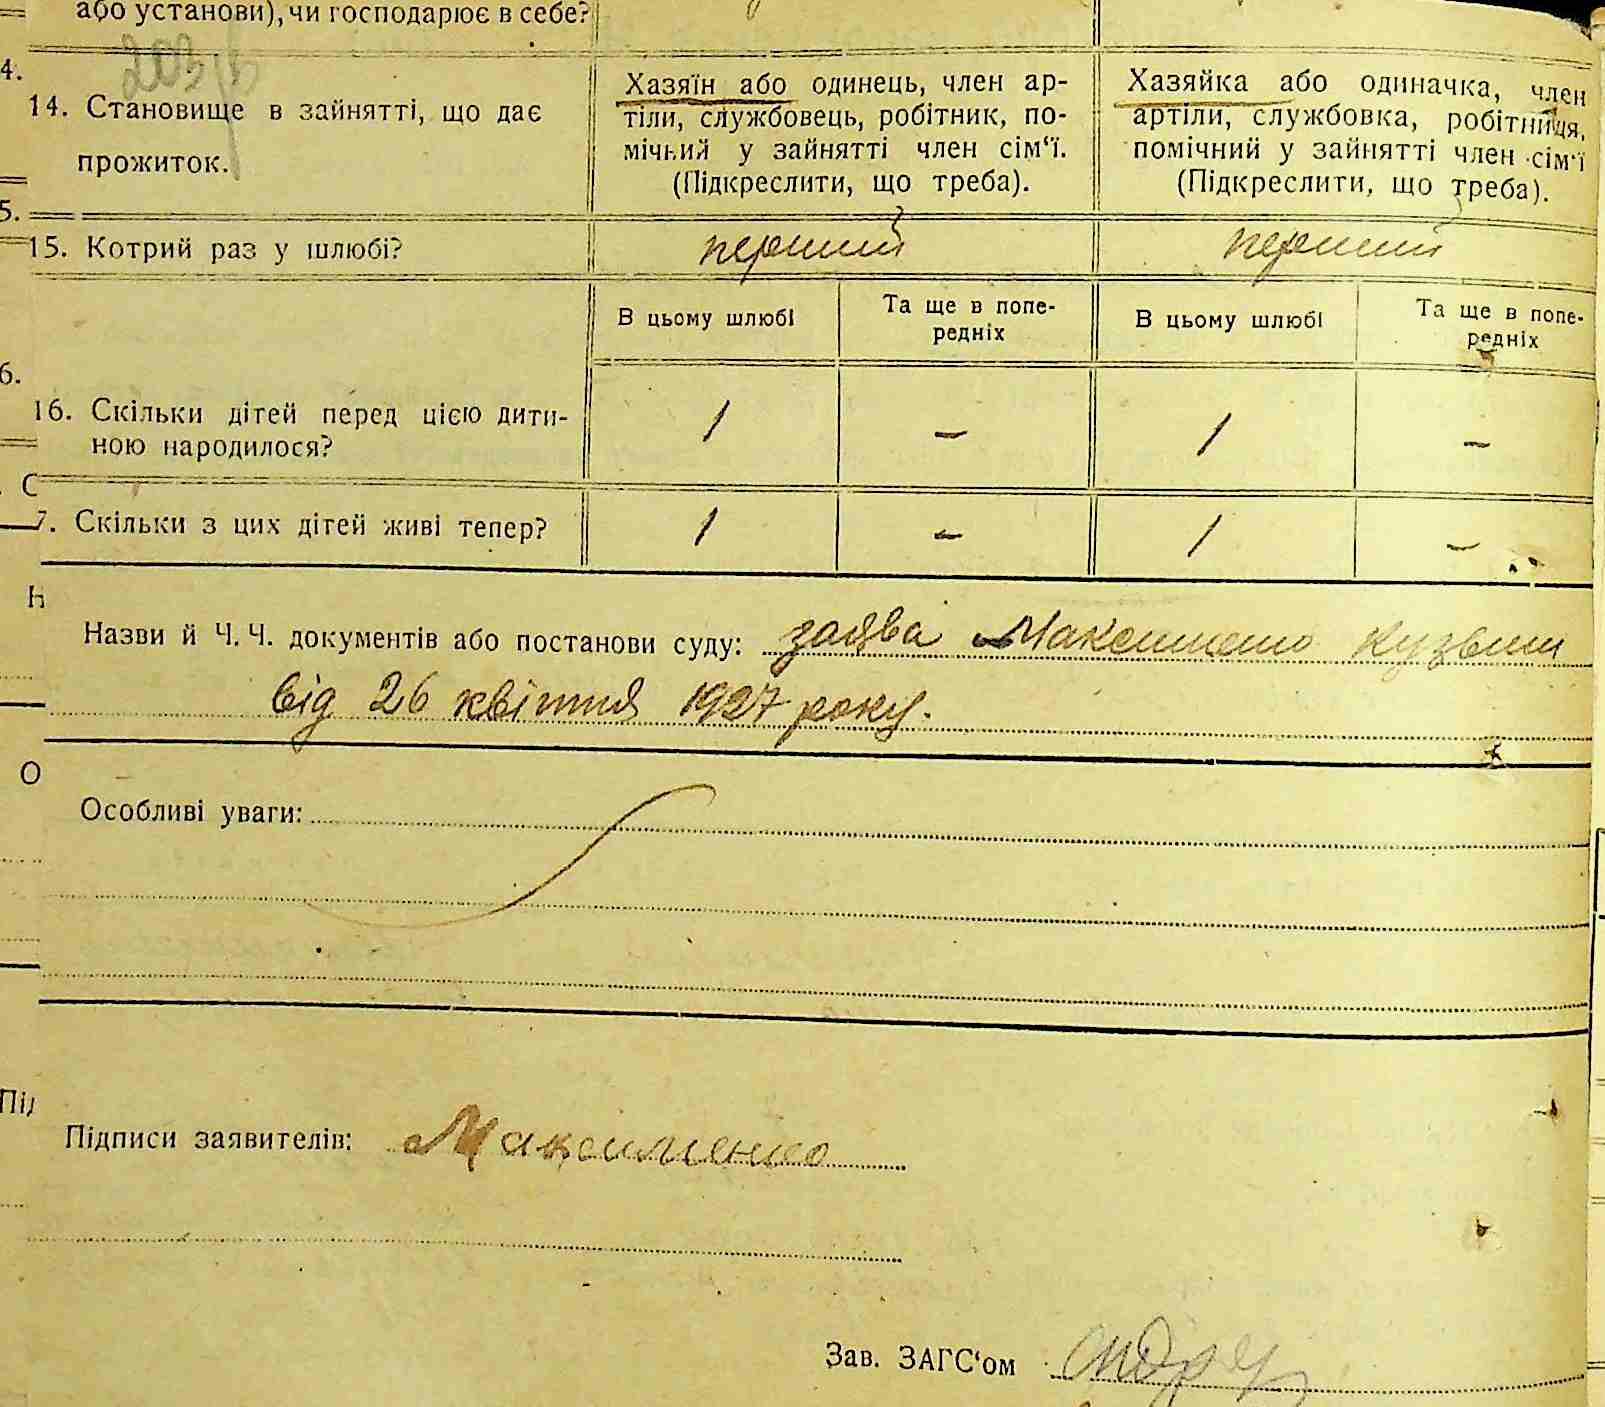 або установи), чи господарює в себе?
203
4.
14. Становище в зайнятті, що дає
прожиток.
Хазяїн або одинець, член ар-
тіли, службовець, робітник, по-
мічний у зайнятті член сім‘ї.
(Підкреслити, що треба).
Хазяйка або одиначка, член
артіли, службовка, робітниця,
помічний у зайнятті член сім‘ї
(Підкреслити, що треба).
5.
15. Котрий раз у шлюбі?
перший
перший
В цьому шлюбі
Та ще в попе-
редніх
В цьому шлюбі
Та ще в попе-
редніх
6.
16. Скільки дітей перед цією дити-
ною народилося?
1
–
1
–
С
7. Скільки з цих дітей живі тепер?
1
–
1
–
Н
Назви й Ч. Ч. документів або постанови суду: заява Максименко Кузьми
від 26 квітня 1927 року.
О
Особливі уваги:
Під
Підписи заявителів: Максименко
Зав. ЗАГС‘ом